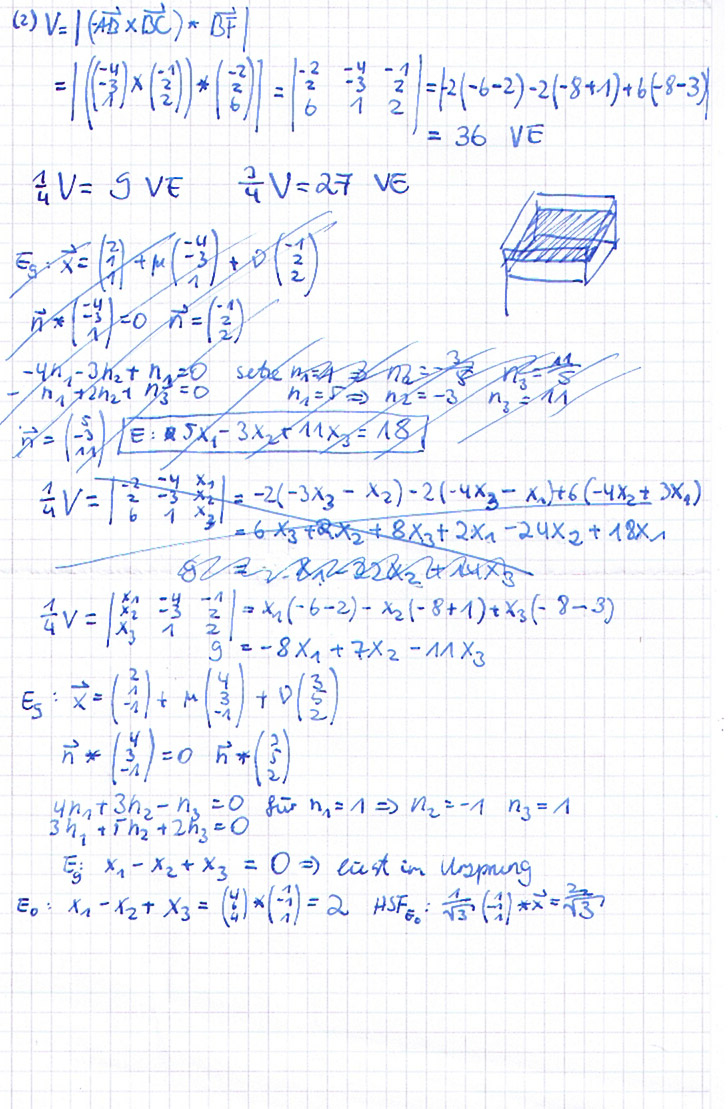 (2) V = | (\vec{AB} × \vec{BC}) * \vec{BF} |
= | ((-4 -3 1) × (-1 2 2)) * (-2 2 6) | = | -2 -4 -1 ; 2 -3 2 ; 6 1 2 | = |-2(-6-2) -2(-8+1) +6(-8-3)|
= 36 VE
1/4 V = 9 VE 3/4 V = 27 VE
E_g: \vec{x} = (2 1 1) + μ (-4 -3 1) + ν (-1 2 2)
\vec{n} * (-4 -3 1) = 0 \vec{n} = (-1 2 2)
-4n₁ - 3n₂ + n₃ = 0 setze n₁ = 1 ⇒ n₂ = -3/5 n₃ = 11/5
- n₁ + 2n₂ + n₃ = 0 n₁ = 5 ⇒ n₂ = -3 n₃ = 11
\vec{n} = (5 -3 11) E: 5x₁ - 3x₂ + 11x₃ = 18
1/4 V = | -2 -4 x₁ ; 2 -3 x₂ ; 6 1 x₃ | = -2(-3x₃ - x₂) - 2(-4x₃ - x₁) + 6(-4x₂ + 3x₁)
= 6x₃ + 2x₂ + 8x₃ + 2x₁ - 24x₂ + 18x₁
1/4 V = | x₁ -4 -1 ; x₂ -3 2 ; x₃ 1 2 | = x₁(-6-2) - x₂(-8+1) + x₃(-8-3)
9 = -8x₁ + 7x₂ - 11x₃
E_g: \vec{x} = (2 1 -1) + μ (4 3 -1) + ν (3 5 2)
\vec{n} * (4 3 -1) = 0 \vec{n} * (3 5 2)
4n₁ + 3n₂ - n₃ = 0 für n₁ = 1 ⇒ n₂ = -1 n₃ = 1
3n₁ + 5n₂ + 2n₃ = 0
E_g: x₁ - x₂ + x₃ = 0 ⇒ liest im Ursprung
E₀: x₁ - x₂ + x₃ = (4 6 4) * (1 -1 1) = 2 HSF_E₀: 1/√3 (1 -1 1) * \vec{x} = 2/√3